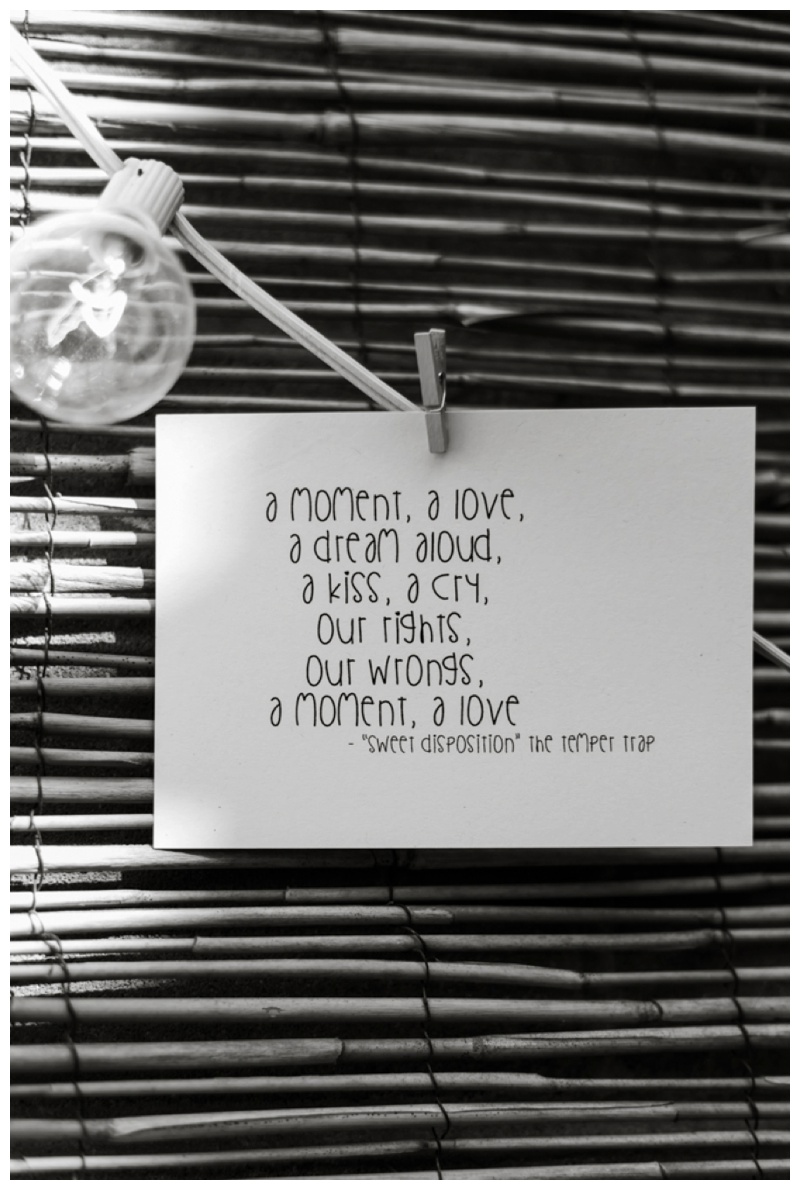 a moment, a love,
a dream aloud,
a kiss, a cry,
our rights,
our wrongs,
a moment, a love
- "sweet disposition" the temper trap